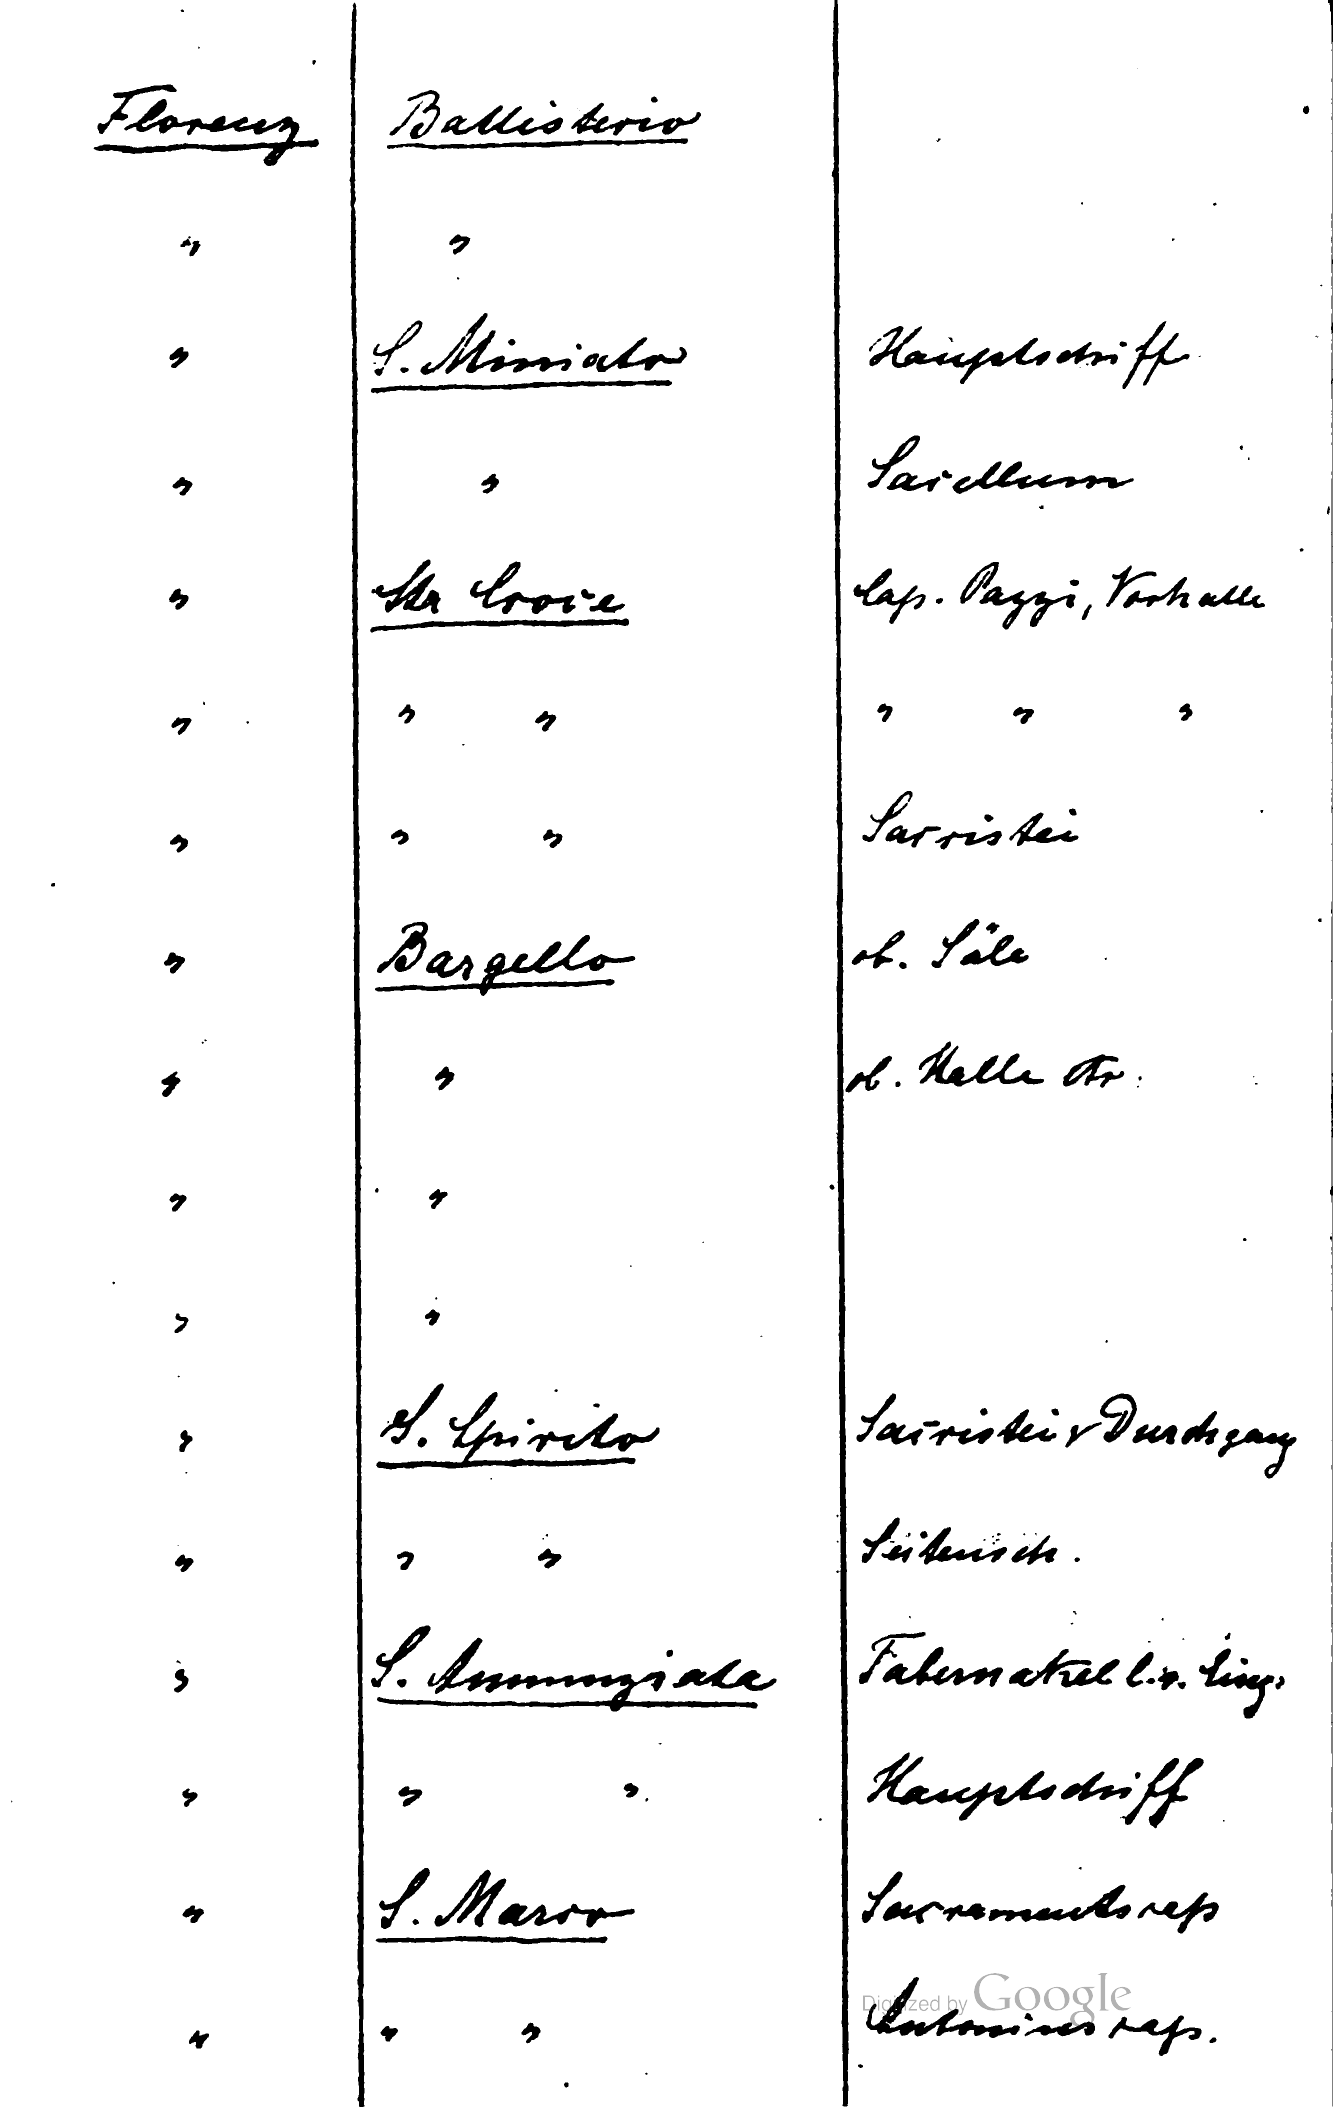 Florenz Battisterio
" "
" S. Miniato Hauptschiff
" " Sacellum
" Sta Croce Cap. Pazzi, Vorhalle
" " " " " "
" " " Sacristei
" Bargello ob. Säle
" " ob. Halle
" "
" "
" S. Spirito Sacristei & Durchgang
" " " Seitensch.
" S. Annunziata Tabernakel l. v. Eing.
" " " Hauptschiff
" S. Marco Sacramentscap
" " " Antoninscap.
Digitized by Google